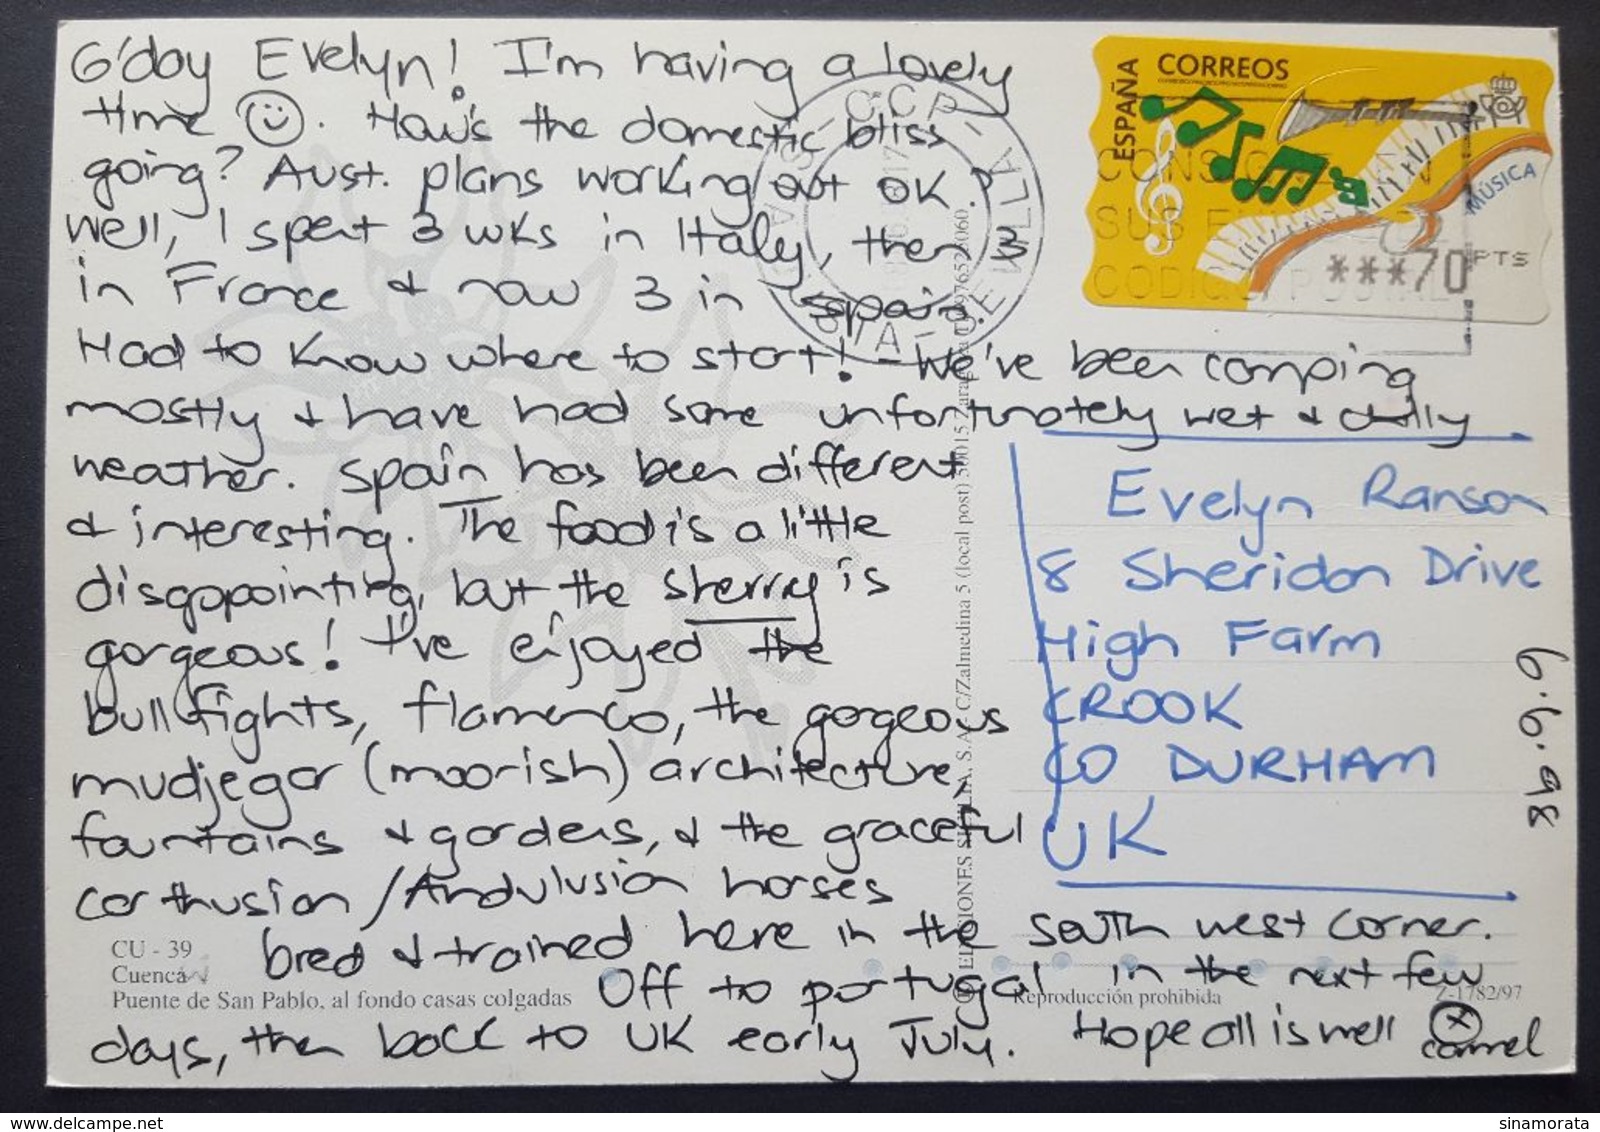 G'day Evelyn! I'm having a lovely
time ☺. How's the domestic bliss
going? Aust. plans working out OK?
Well, I spent 3 wks in Italy, then 3
in France & now 3 in Spain.
Had to know where to start! - We've been camping
mostly & have had some unfortunately wet & chilly
weather. Spain has been different
& interesting. The food is a little
disappointing, but the sherry is
gorgeous! I've enjoyed the
bullfights, flamenco, the gorgeous
mudjegar (moorish) architecture,
fountains & gardens, & the graceful
carthusian / Andulusian horses
bred & trained here in the south west corner.
Off to portugal in the next few
days, then back to UK early July. Hope all is well
x
carmel
Evelyn Ranson
8 Sheridan Drive
High Farm
CROOK
CO DURHAM
UK
6.6.98
ESPAÑA
CORREOS
MÚSICA
***70 PTS
CONSIGNEN
SUS ENVIOS
CODIGO POSTAL
CU - 39
Cuenca
Puente de San Pablo, al fondo casas colgadas
EDICIONES SICILIA, S.A. C/Zalmedina 5 (local post) 50015 Zaragoza
Reproducción prohibida
Z-1782/97
sinamorata